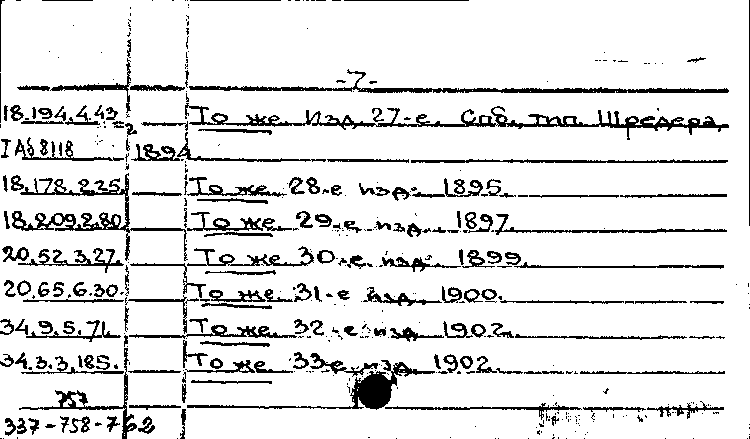 -7-
18.194.4.43 То же. Изд. 27-е. Спб., тип. Шредера,
IАб 8118 1894.
18.178.2.25. То же. 28-е изд. 1895.
18.209.2.80. То же. 29-е изд. 1897.
20.52.3.27. То же. 30-е изд. 1899.
20.65.6.30. То же. 31-е изд. 1900.
34.9.5.71. То же. 32-е изд. 1902.
34.3.3.185. То же. 33-е изд. 1902.
757
337-758-762